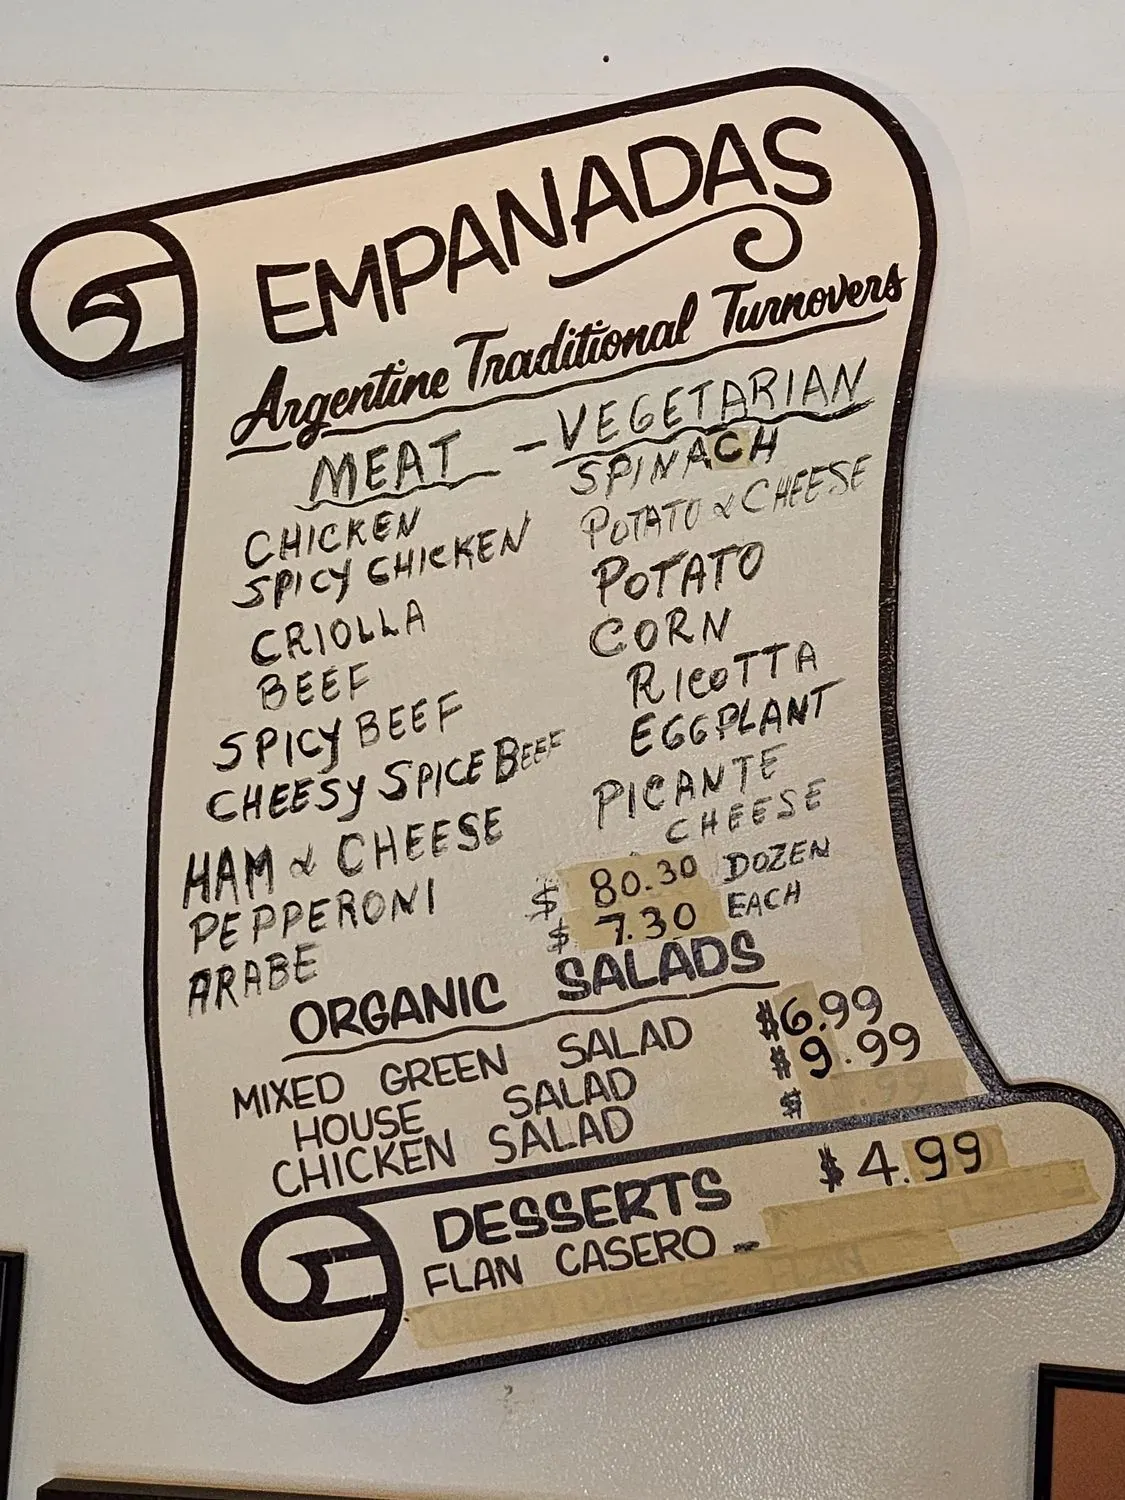 EMPANADAS
Argentine Traditional Turnovers
MEAT - VEGETARIAN
CHICKEN
SPICY CHICKEN
CRIOLLA
BEEF
SPICY BEEF
CHEESY SPICE BEEF
HAM & CHEESE
PEPPERONI
ARABE
SPINACH
POTATO & CHEESE
POTATO
CORN
RICOTTA
EGGPLANT
PICANTE
CHEESE
$ 80.30 DOZEN
$ 7.30 EACH
ORGANIC SALADS
MIXED GREEN SALAD $6.99
HOUSE SALAD $9.99
CHICKEN SALAD $ .99
DESSERTS $4.99
FLAN CASERO -
CREAM CHEESE FLAN